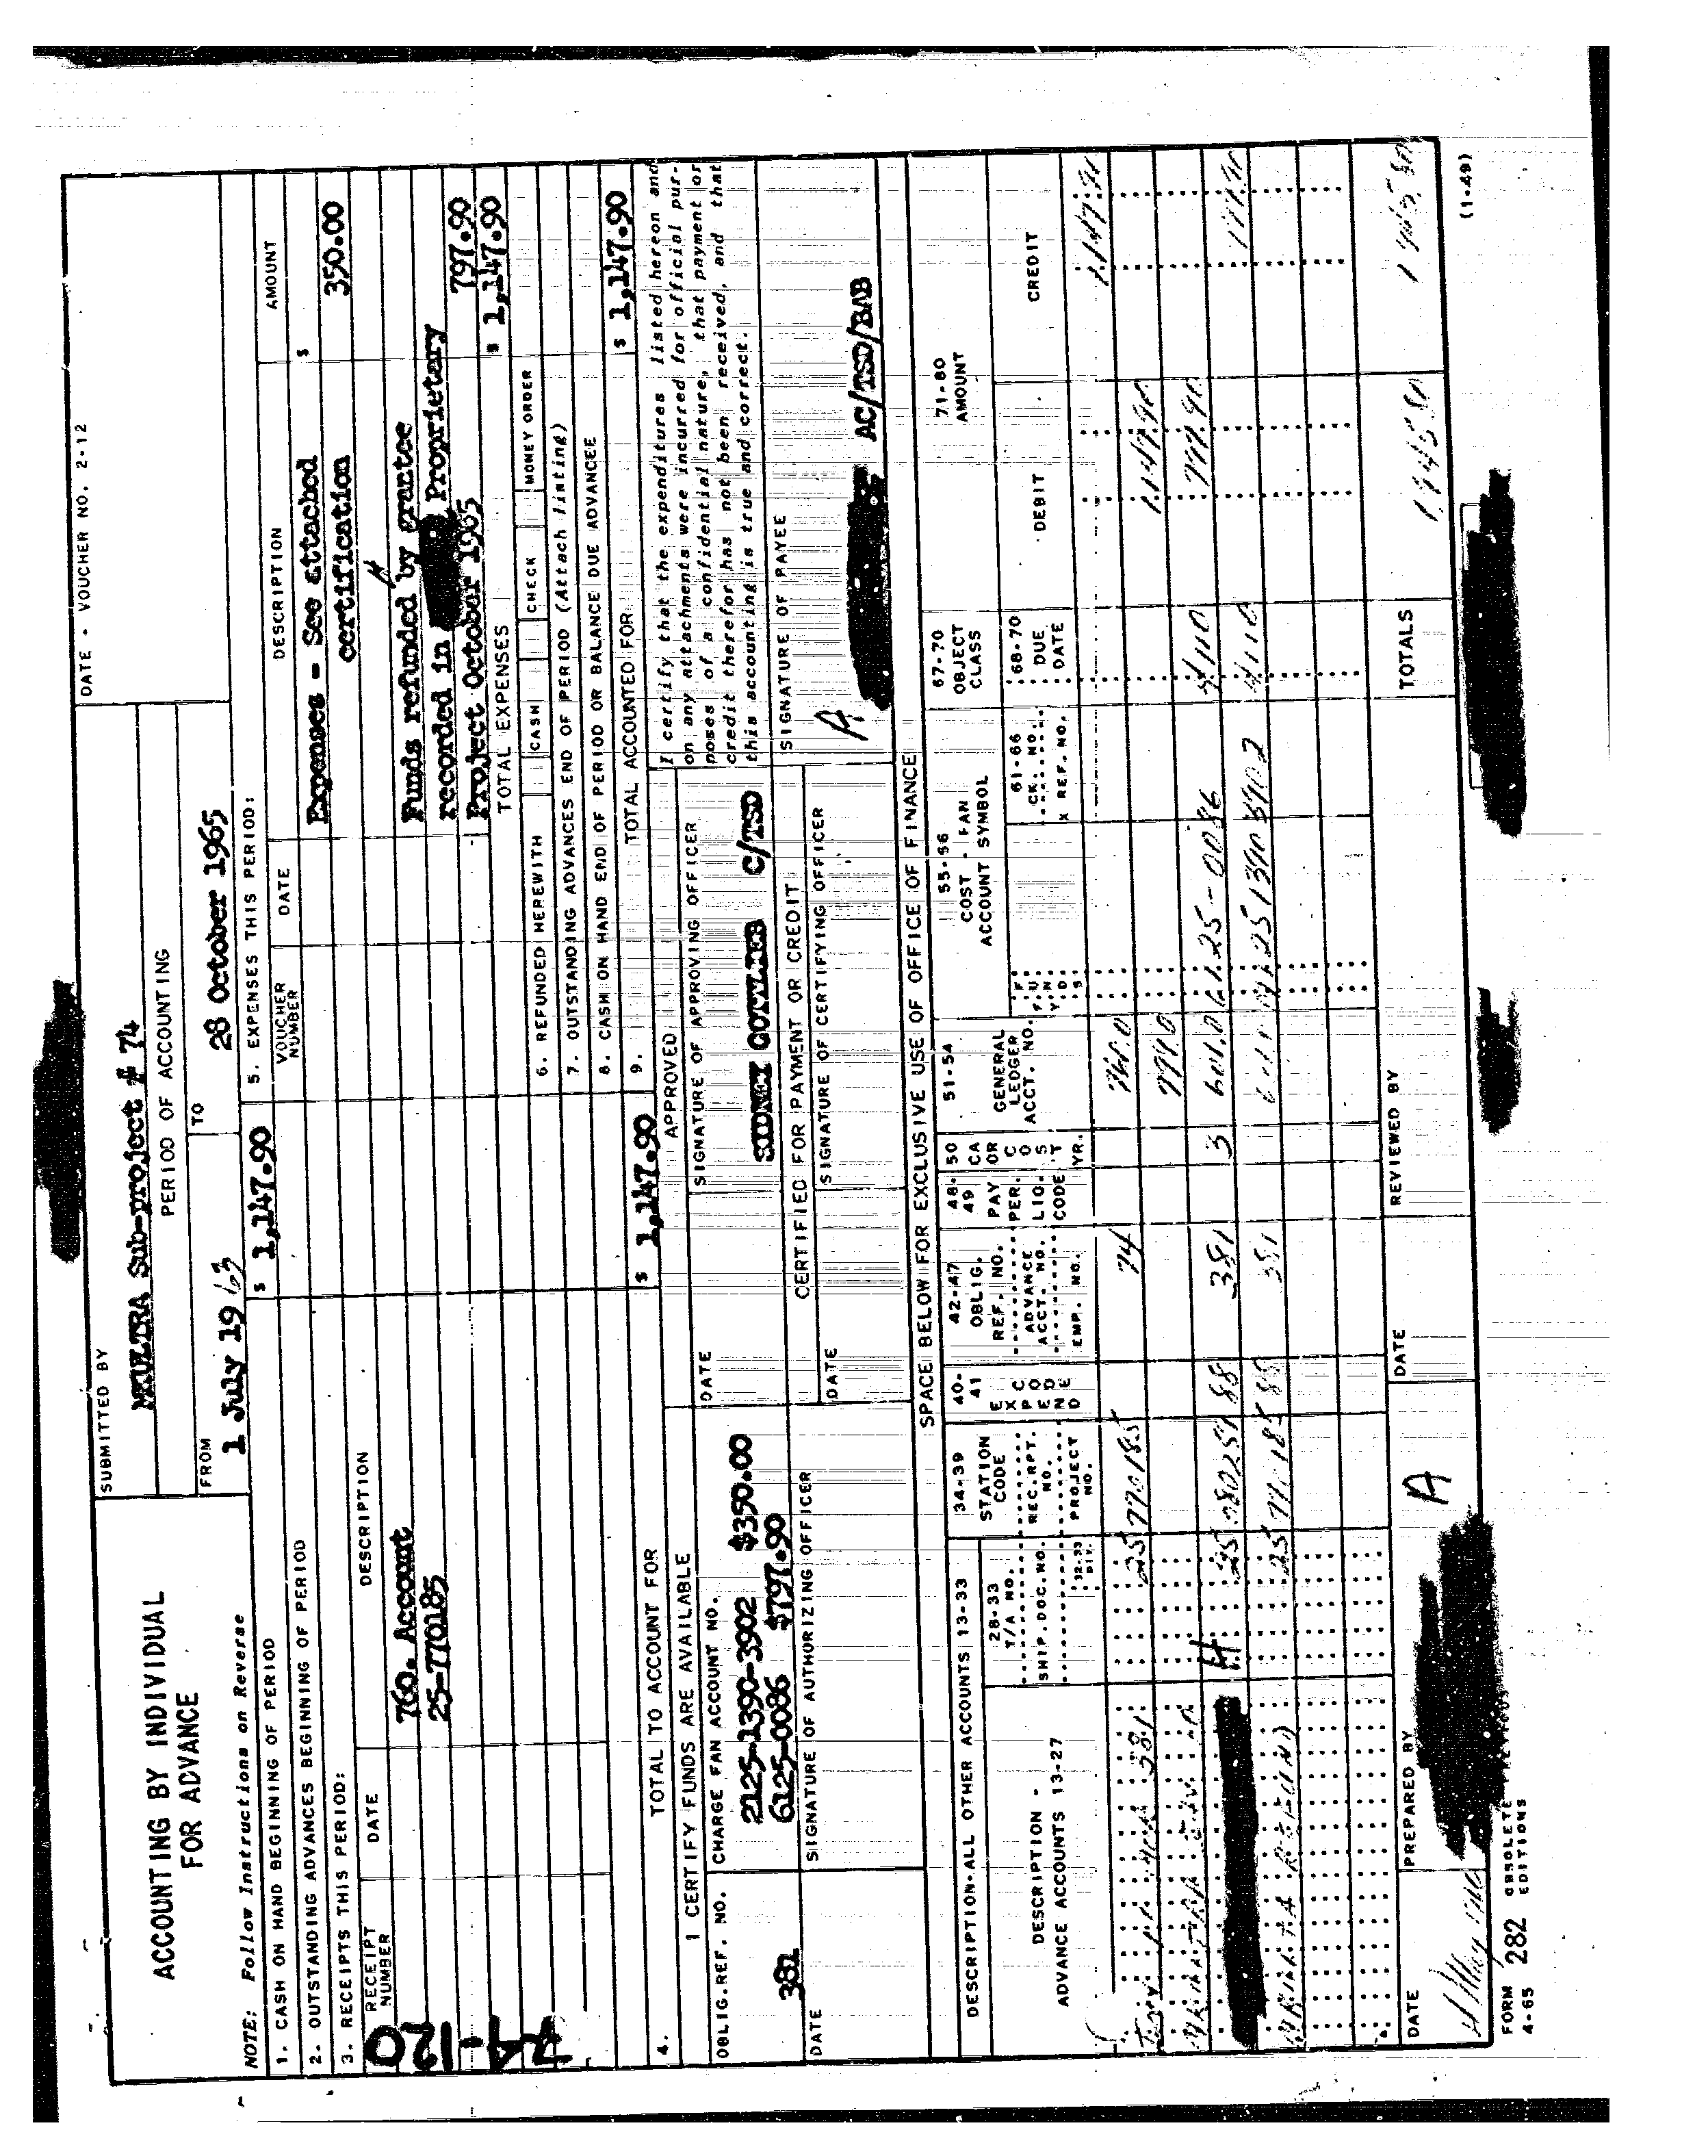 ACCOUNTING BY INDIVIDUAL
FOR ADVANCE
SUBMITTED BY
MKULTRA Sub-project # 74
DATE - VOUCHER NO. 2-12
PERIOD OF ACCOUNTING
FROM
1 July 1963
TO
28 October 1965
NOTE: Follow Instructions on Reverse
1. CASH ON HAND BEGINNING OF PERIOD
$ 1,147.90
2. OUTSTANDING ADVANCES BEGINNING OF PERIOD
3. RECEIPTS THIS PERIOD:
RECEIPT NUMBER
DATE
DESCRIPTION
760. Account
25-770185
74-120
5. EXPENSES THIS PERIOD:
VOUCHER NUMBER
DATE
DESCRIPTION
AMOUNT
Expenses - See attached
$
certification
350.00
Funds refunded by grantee
recorded in
Proprietary
Project October 1965
797.90
TOTAL EXPENSES
$ 1,147.90
6. REFUNDED HEREWITH
CASH
CHECK
MONEY ORDER
7. OUTSTANDING ADVANCES END OF PERIOD (Attach listing)
8. CASH ON HAND END OF PERIOD OR BALANCE DUE ADVANCEE
4. TOTAL TO ACCOUNT FOR
$ 1,147.90
9. TOTAL ACCOUNTED FOR
$ 1,147.90
I CERTIFY FUNDS ARE AVAILABLE
OBLIG.REF. NO.
381
CHARGE FAN ACCOUNT NO.
2125-1390-3902 $350.00
6125-0086 $797.90
DATE
SIGNATURE OF AUTHORIZING OFFICER
APPROVED
DATE
SIGNATURE OF APPROVING OFFICER
SIDNEY GOTTLIEB C/TSD
CERTIFIED FOR PAYMENT OR CREDIT
DATE
SIGNATURE OF CERTIFYING OFFICER
I certify that the expenditures listed hereon and
on any attachments were incurred for official pur-
poses of a confidential nature, that payment or
credit therefor has not been received, and that
this accounting is true and correct.
SIGNATURE OF PAYEE
A
AC/TSD/BAB
SPACE BELOW FOR EXCLUSIVE USE OF OFFICE OF FINANCE
DESCRIPTION-ALL OTHER ACCOUNTS 13-33
DESCRIPTION -
ADVANCE ACCOUNTS 13-27
28-33
T/A NO.
SHIP.DOC.NO.
32-33
DIV.
34-39
STATION
CODE
REC.RPT.
NO.
PROJECT
NO.
40-
41
EXPEND
CODE
42-47
OBLIG.
REF. NO.
ADVANCE
ACCT. NO.
EMP. NO.
48-
49
PAY
PER.
LIQ.
CODE
50
CA
OR
COST
YR.
51-54
GENERAL
LEDGER
ACCT. NO.
FUNDS
55-56
COST - FAN
ACCOUNT SYMBOL
61-66
CK. NO.
X REF. NO.
67-70
OBJECT
CLASS
68-70
DUE
DATE
71-80
AMOUNT
DEBIT
CREDIT
381
25 770185
74
760.0
1147.90
1147.90
797.90
H
88
381
3
601.0
6125-0086
4110
381
25 1390 3902
797.90
DATE
PREPARED BY
A
DATE
REVIEWED BY
TOTALS
1945.80
1945.80
FORM
4-65
282
OBSOLETE PREVIOUS
EDITIONS
(1-49)